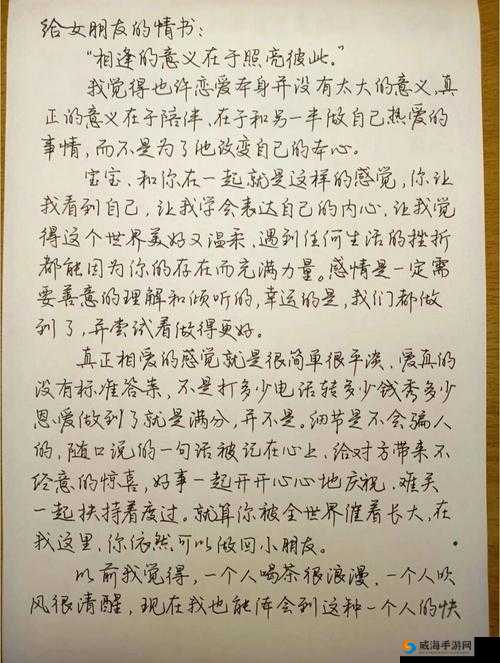 给女朋友的情书：
“相逢的意义在于照亮彼此。”
我觉得也许恋爱本身并没有太大的意义，真
正的意义在于陪伴、在于和另一半做自己热爱的
事情，而不是为了他改变自己的本心。
宝宝、和你在一起就是这样的感觉，你让
我看到自己，让我学会表达自己的内心，让我觉
得这个世界美好又温柔，遇到任何生活的挫折
都能因为你的存在而充满力量。感情是一定需
要善意的理解和倾听的，幸运的是，我们都做
到了，并尝试着做得更好。
真正相爱的感觉就是很简单很平淡、爱真的
没有标准答案，不是打多少电话转多少钱秀多少
恩爱做到了就是满分，并不是。细节是不会骗人
的，随口说的一句话被记在心上、给对方带来不
经意的惊喜，好事一起开开心心地庆祝、难关
一起扶持着度过。就算你被全世界催着长大，在
我这里，你依然可以做回小朋友。
以前我觉得，一个人喝茶很浪漫、一个人吹
风很清醒，现在我也能体会到这种一个人的快
威海手游网